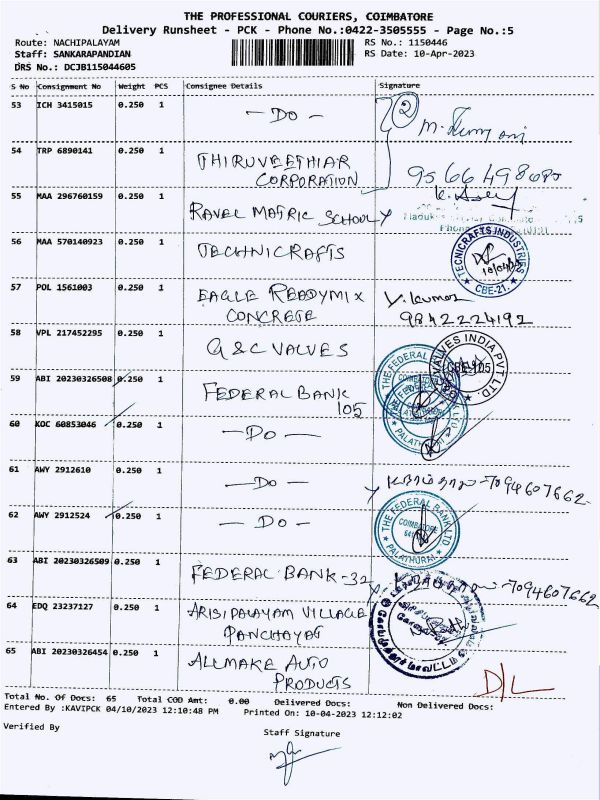 THE PROFESSIONAL COURIERS, COIMBATORE
Delivery Runsheet - PCK - Phone No.:0422-3505555 - Page No.:5
Route: NACHIPALAYAM RS No.: 1150446
Staff: SANKARAPANDIAN RS Date: 10-Apr-2023
DRS No.: DCJB115044605
S No Consignment No Weight PCS Consignee Details Signature
53 ICH 3415015 0.250 1 — Do — 2
54 TRP 6890141 0.250 1 THIRUVEETHIAR
CORPORATION
55 MAA 296760159 0.250 1 RAVEL MATRIC SCHOOL
56 MAA 570140923 0.250 1 TECHNICRAFTS TECNICRAFTS INDUSTRIES
CBE-21.
57 POL 1561003 0.250 1 EAGLE READYMIX V. Kumar
CONCRETE 9842224192
58 VPL 217452295 0.250 1 G&C VALVES VALVES INDIA PVT LTD
CBE-105
59 ABI 20230326508 0.250 1 FEDERAL BANK THE FEDERAL
105
60 KOC 60853046 0.250 1 — Do —
61 AWY 2912610 0.250 1 — Do — 7094607662
62 AWY 2912524 0.250 1 — Do — THE FEDERAL BANK LTD
COIMBATORE
PALATHURAI
63 ABI 20230326509 0.250 1 FEDERAL BANK-32 7094607662
64 EDQ 23237127 0.250 1 ARISIPALAYAM VILLAGE
PANCHAYAT
65 ABI 20230326454 0.250 1 ALLMAKE AUTO
PRODUCTS D/L
Total No. Of Docs: 65 Total COD Amt: 0.00 Delivered Docs: Non Delivered Docs:
Entered By :KAVIPCK 04/10/2023 12:10:48 PM Printed On: 10-04-2023 12:12:02
Verified By Staff Signature